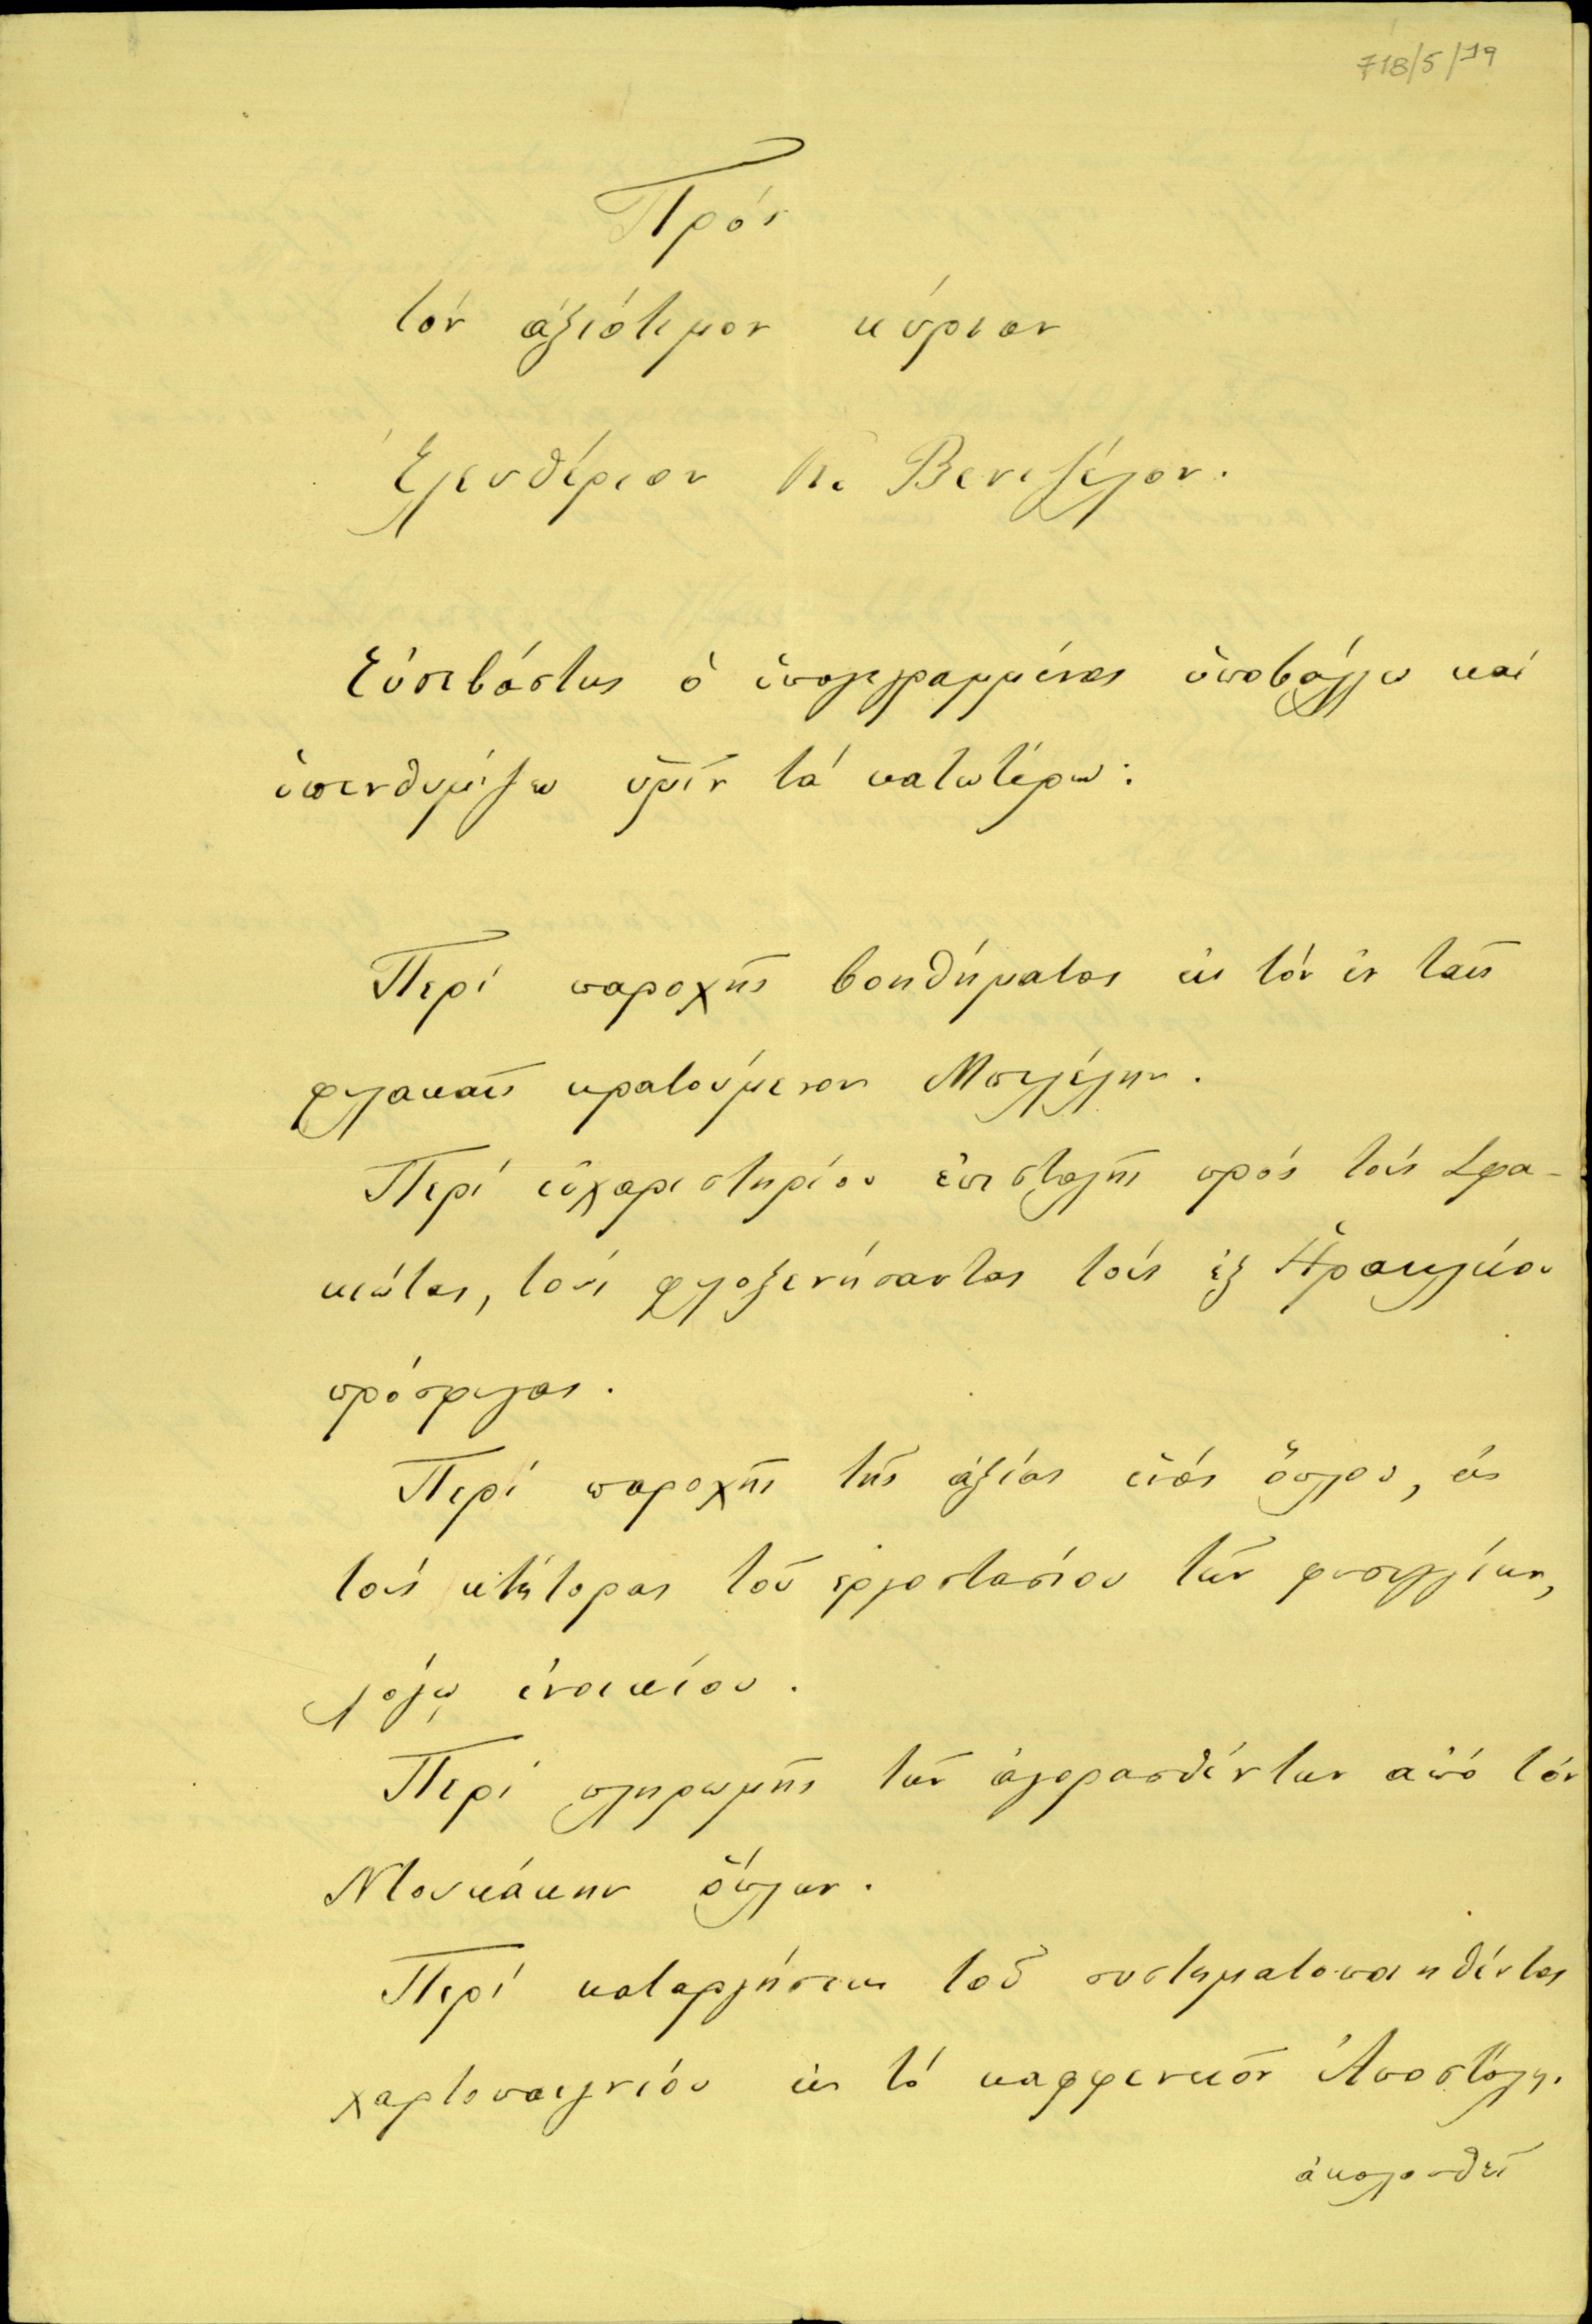 718/5/19
Πρός
τόν ἀξιότιμον κύριον
Ἐλευθέριον Κ. Βενιζέλον.
Εὐσεβάστως ὁ ὑπογεγραμμένος ὑποβάλλω καί
ὑπενθυμίζω ὑμῖν τά κατωτέρω:
Περί παροχῆς βοηθήματος εἰς τόν ἐν ταῖς
φυλακαῖς κρατούμενον
Περί εὐχαριστηρίου ἐπιστολῆς πρός τούς Σφα-
κιώτας, τούς φιλοξενήσαντας τούς ἐξ Ἡρακλείου
πρόσφυγας.
Περί παροχῆς τῆς ἀξίας ἑνός ὅπλου, εἰς
τούς κτήτορας τοῦ ἐργοστασίου τῶν φυσιγγίων,
λόγῳ ἐνοικίου.
Περί πληρωμῆς τῶν ἀγορασθέντων ἀπό τόν
Ντουκάκην ὅπλων.
Περί καταργήσεως τοῦ συστηματοποιηθέντος
χαρτοπαιγνίου εἰς τό καφφενεῖον Ἀποστόλη.
ἀκολουθεῖ